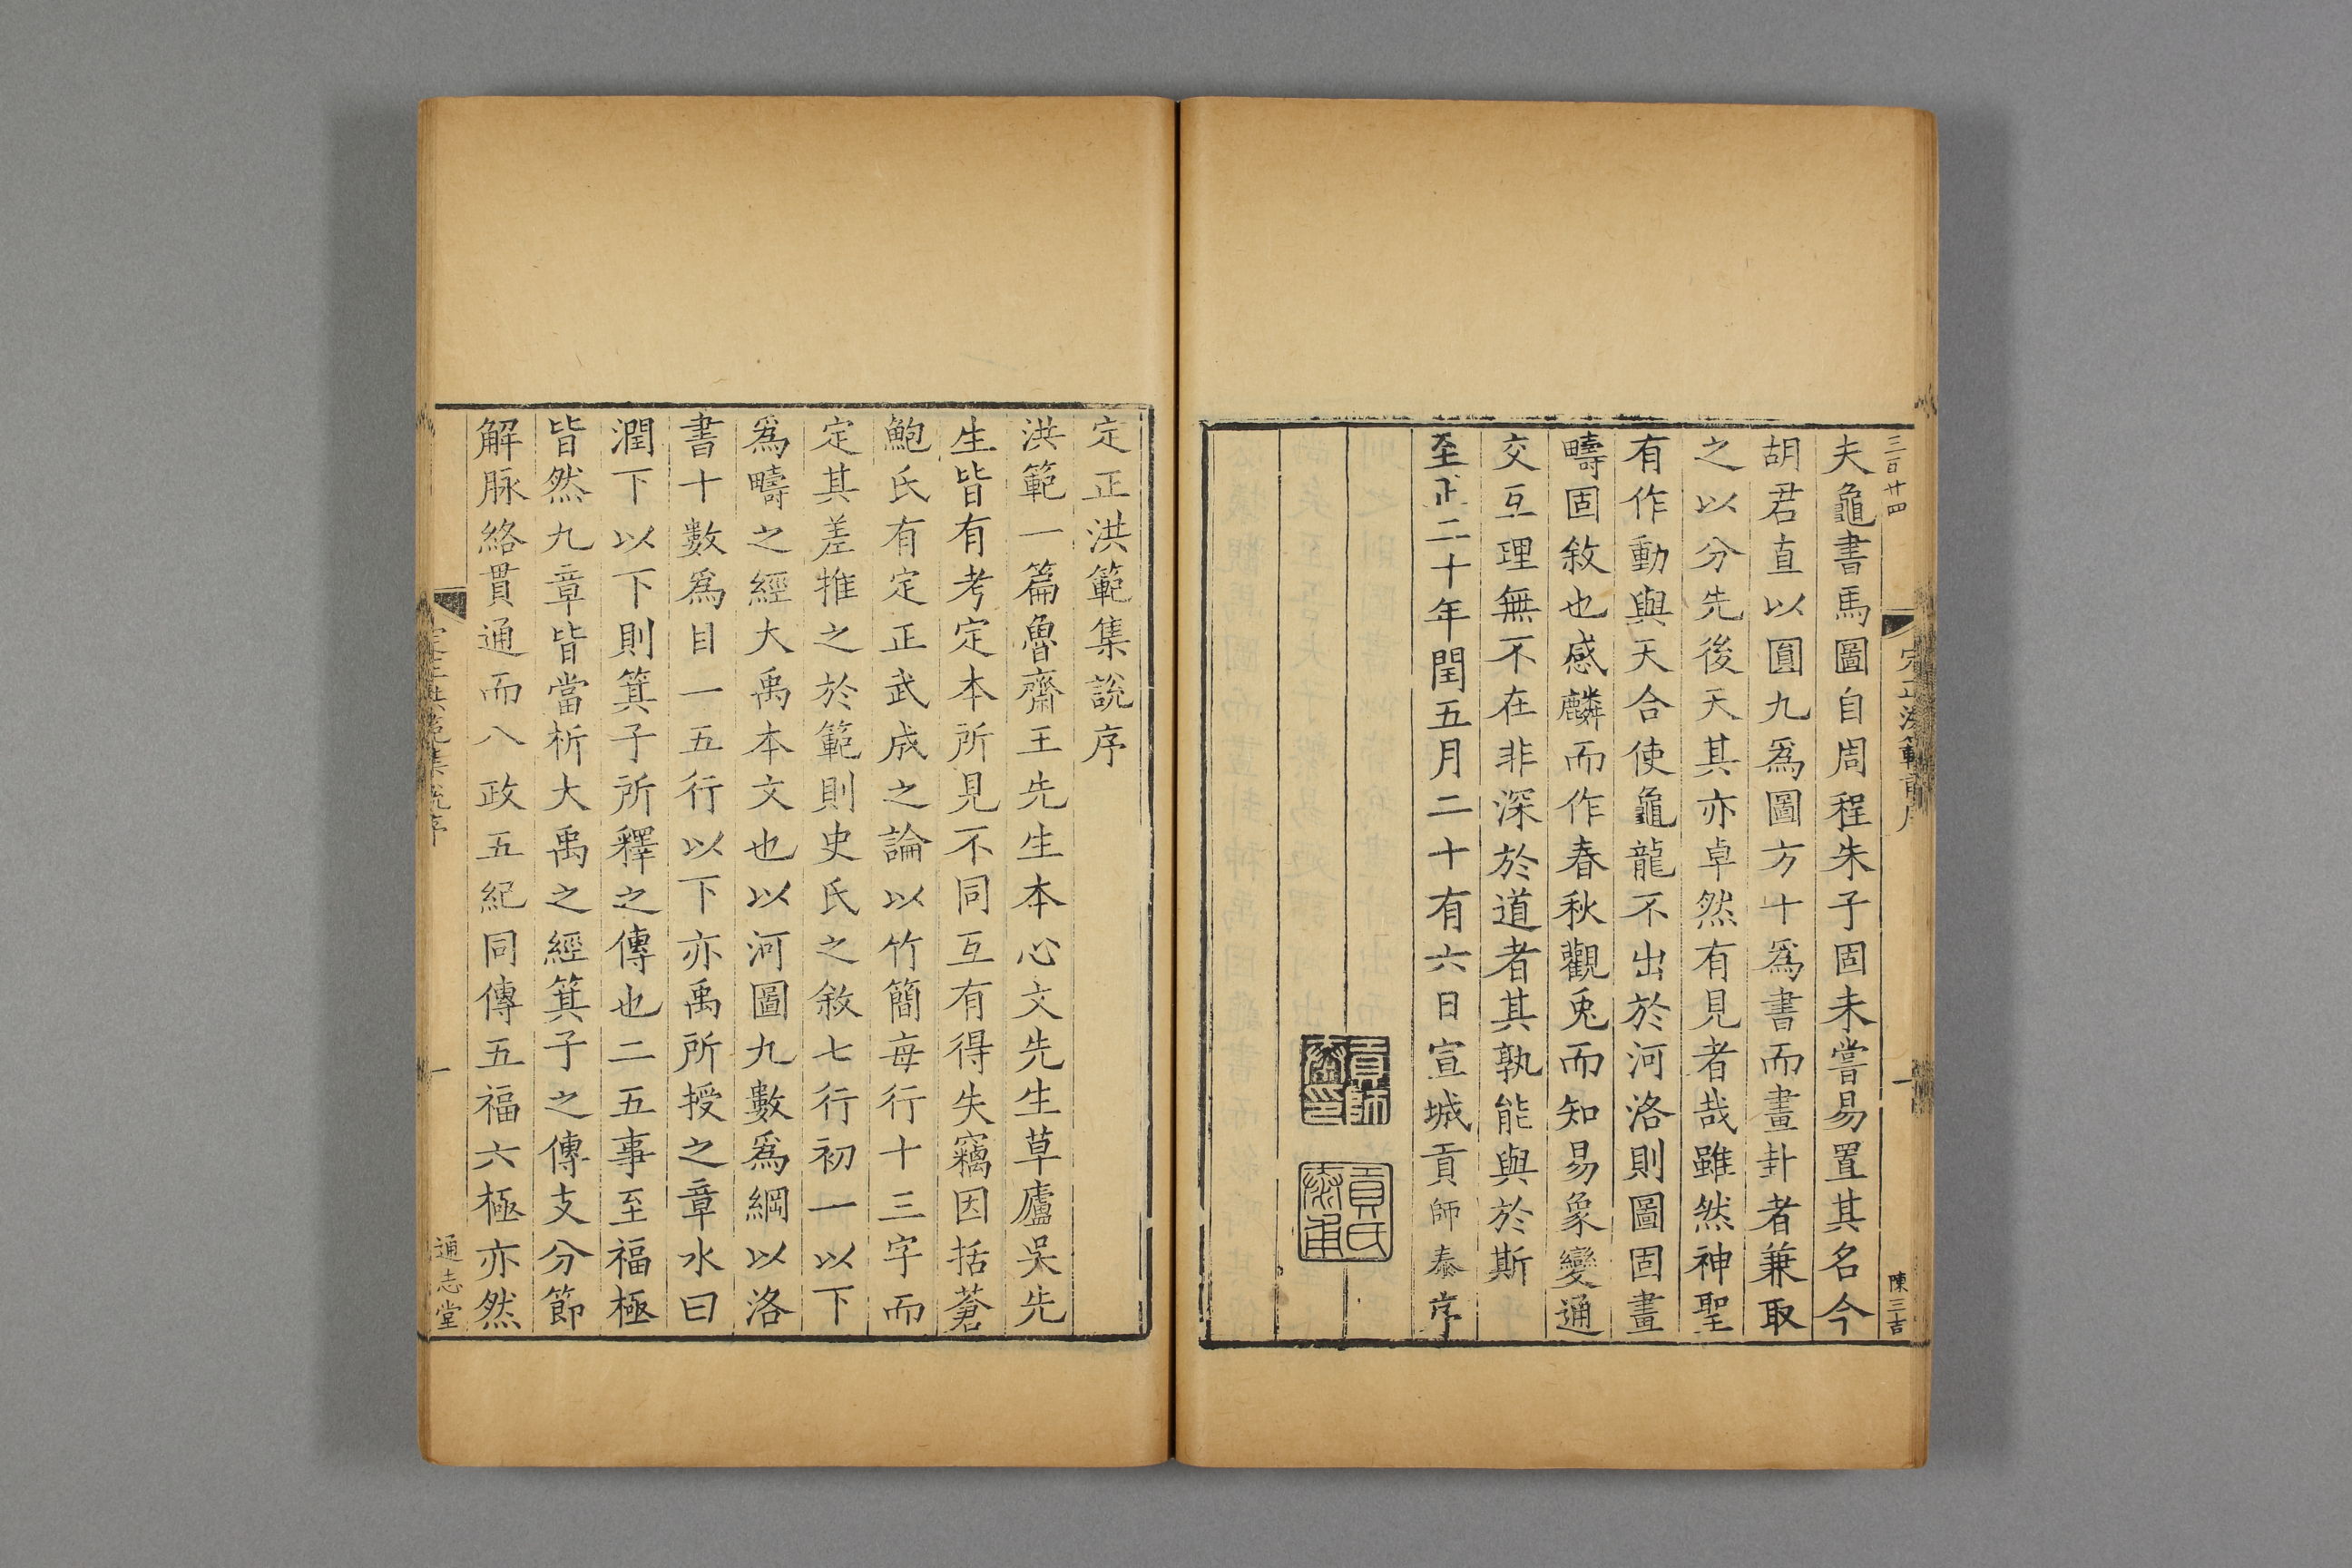 三百廿四
定正洪範前序
一
陳三吉
夫龜書馬圖自周程朱子固未嘗易置其名今
胡君直以圓九爲圖方十爲書而畫卦者兼取
之以分先後天其亦卓然有見者哉雖然神聖
有作動與天合使龜龍不出於河洛則圖固畫
疇固敘也感麟而作春秋觀兎而知易象變通
交互理無不在非深於道者其孰能與於斯
至正二十年閏五月二十有六日宣城貢師泰序
貢師泰印
貢氏泰甫
定正洪範集說序
洪範一篇魯齋王先生本心文先生草廬吳先
生皆有考定本所見不同互有得失竊因括蒼
鮑氏有定正武成之論以竹簡每行十三字而
定其差推之於範則史氏之敘七行初一以下
爲疇之經大禹本文也以河圖九數爲綱以洛
書十數爲目一五行以下亦禹所授之章水曰
潤下以下則箕子所釋之傳也二五事至福極
皆然九章皆當析大禹之經箕子之傳支分節
解脉絡貫通而八政五紀同傳五福六極亦然
定正洪範集說序
一
通志堂